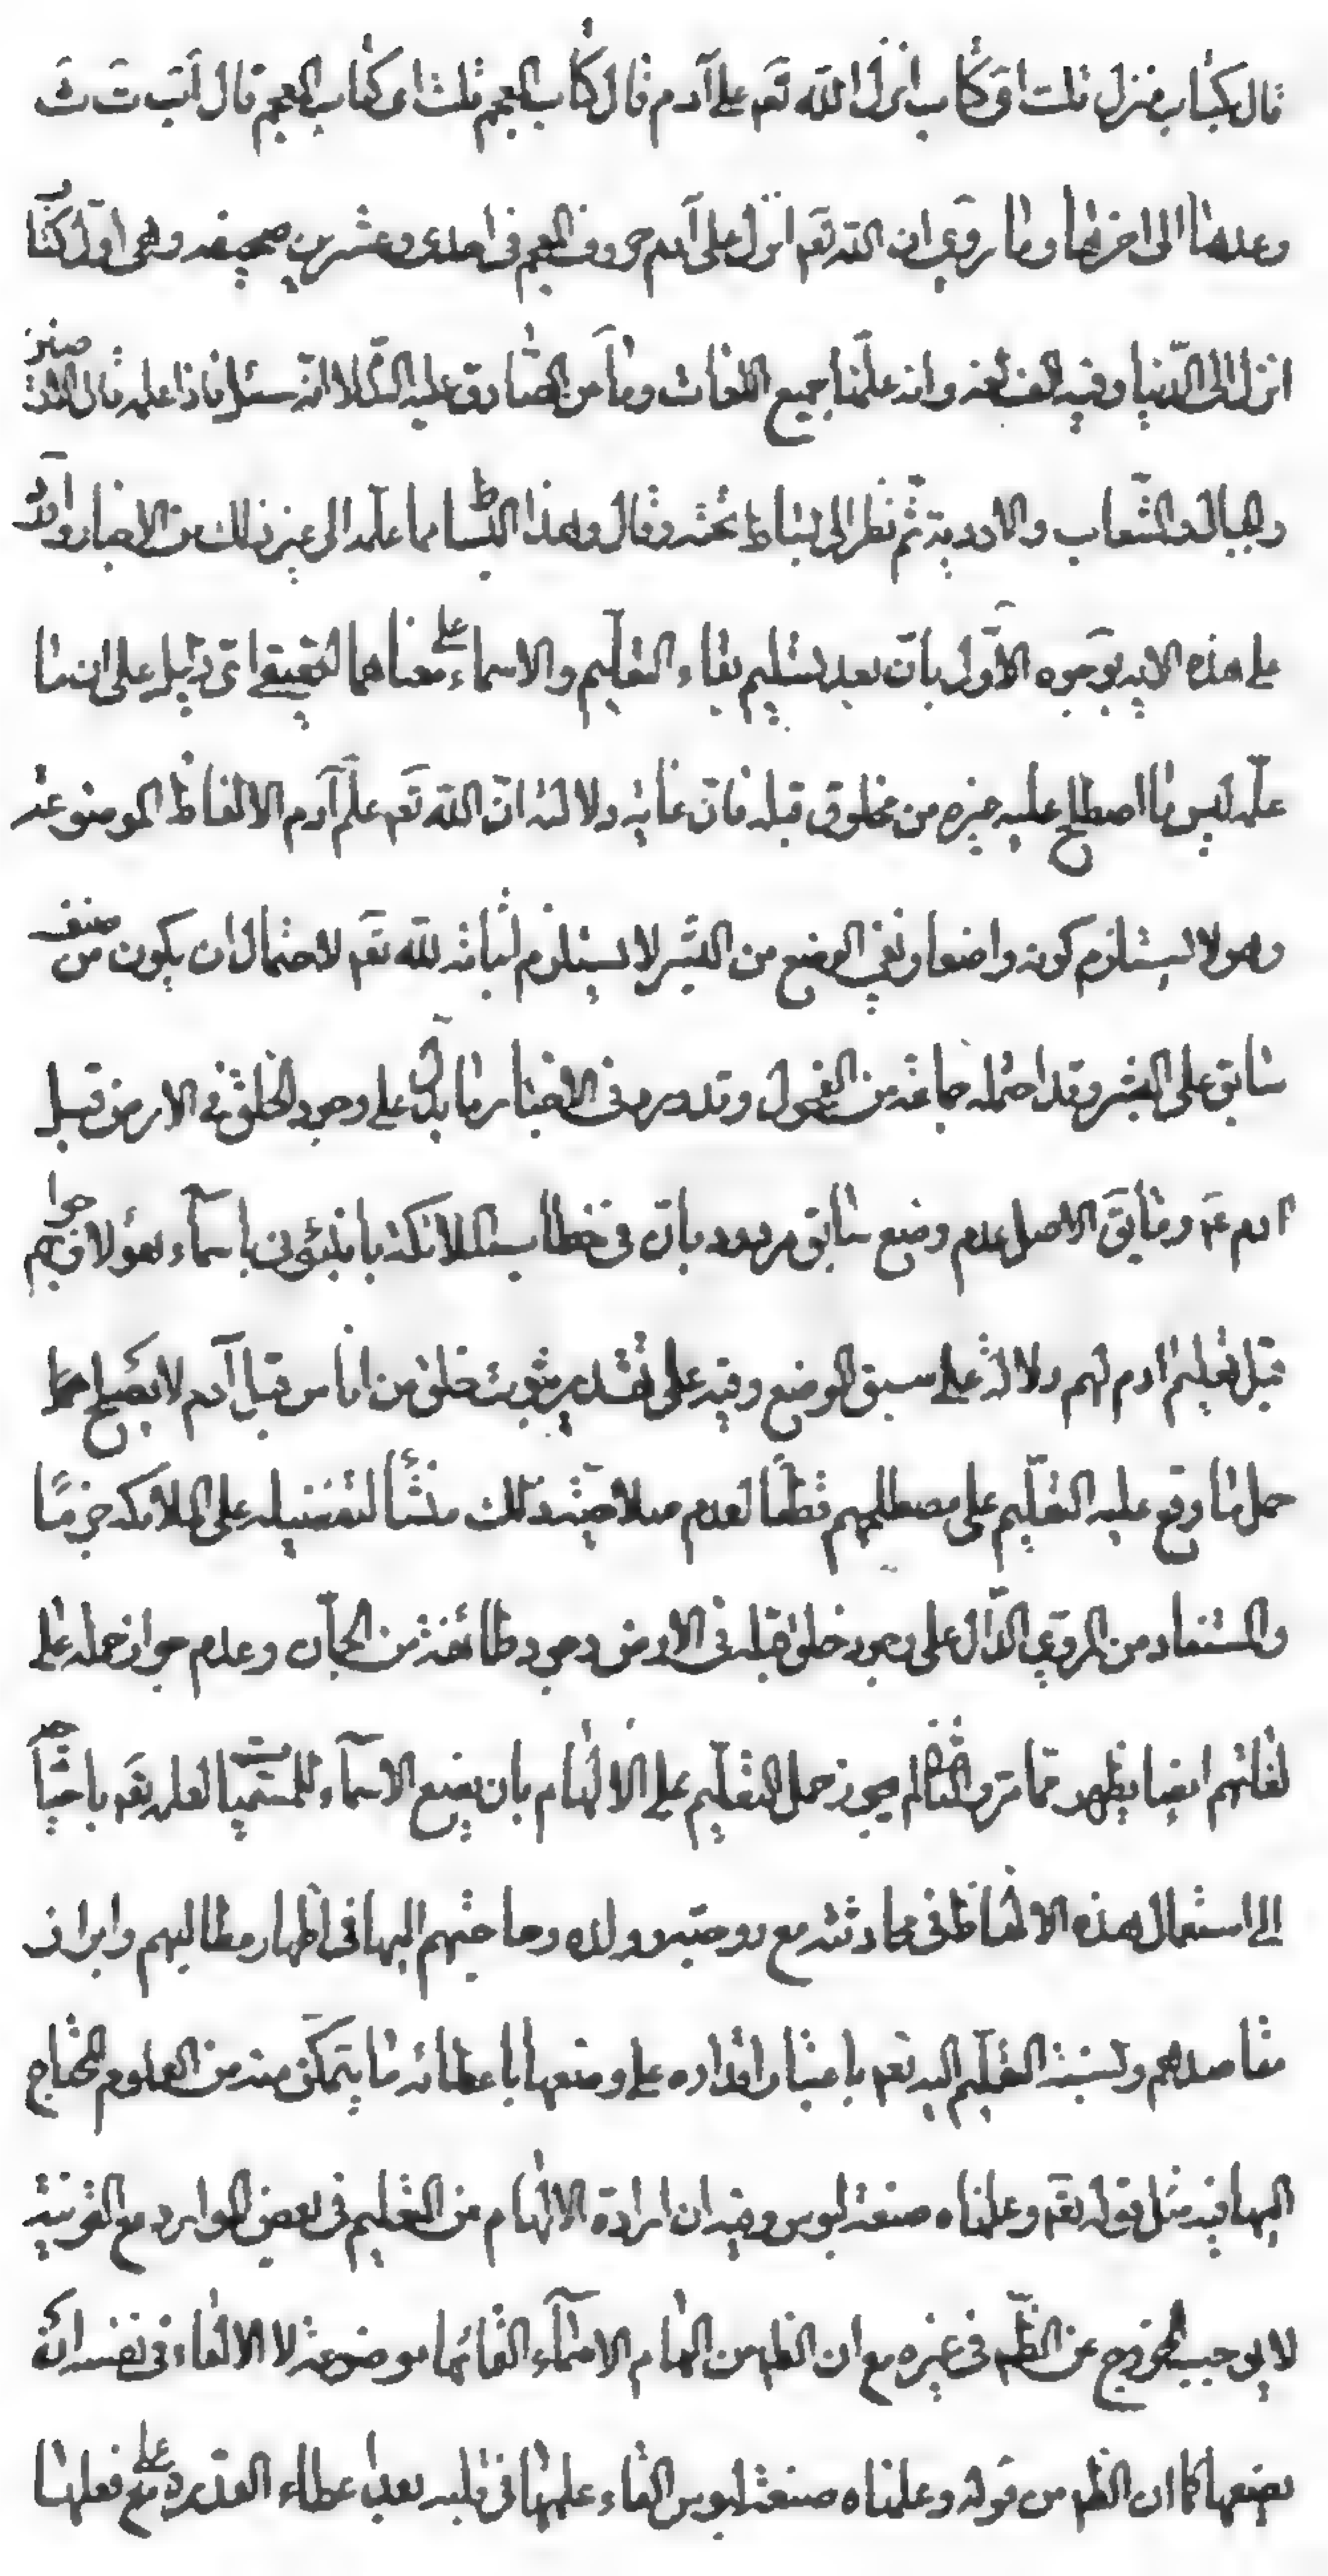 قال بكتاب منزل قلت اى كتاب انزل الله تعه على آدم قال كتاب المعجم قلت اى كتاب المعجم قال ا ب ت ث
وعدها الى اخرها وما روى ان الله تعه انزل على آدم حروف المعجم فى احدى وعشرين صحيفه وهى اول كتا
انزل الى الدنيا وفيه الف لغه وانه علمنا جميع اللغات وما من الصادق عليه السلا انه سئل ماذا علمه قال الارضين
والجبال والشعاب والاودية ثم نظر الى بساط تحته وقال وهذا البسا مما علمه الى غير ذلك من الاخبار واورد
على هذه الايه بوجوه الاول بان بعد تسليم بقاء التعليم والاسماء على معناهما الحقيقى اى دليل على ان ما
علمه ليس ما اصطلح عليه غيره من مخلوق قبله فان غايه دلالته ان الله تعه علم آدم الالفاظ الموضوعة
وهو لا يستلزم كونه واضعا ونفى الوضع من البشر لا يستلزم اثباته لله تعه لاحتمال ان يكون من صنف
سابق على البشر وقد احتمله جماعة من الفحول وقد ورد فى الاخبار ما يدل على وجود الخلق فى الارض قبل
ادم عه وما يق الاصل عدم وضع سابق مردود بان فى خطاب الملائكة با نبئونى باسماء هؤلاء وجوابهم
قبل تعليم ادم لهم دلالة على سبق الوضع وفيه على تقدير ثبوت خلق من اناس قبل آدم لا يصلح
حمل ما وقع عليه التعليم على مصطلحهم قطعا لعدم صلاحية ذلك منشأ لتفضيله على الملائكه جزما
والمستفاد من المروى الدال على وجود خلق قبله فى الارض وجود طائفة من الجان وعدم جواز حمله على
لغاتهم ايضا يظهر مما مر والثانى لم يجوز حمل التعليم على الالهام بان يضع الاسماء للمسميا لعلمه تعه باحتيا
الى استعمال هذه الالفاظ فى محادثته مع زوجته وولده وحاجتهم اليها فى اظهار مطالبهم وابراز
مقاصدهم ونسبة التعليم اليه تعه باعتبار اقداره على وضعها باعطائه ما يتمكن منه من العلوم المحتاج
اليها فيه مثل قوله تعه وعلمناه صنعة لبوس وفيه ان ارادة الالهام من التعليم فى بعض الموارد مع القرينة
لا يوجب الخروج عن الظم فى غيره مع ان الظم من الهام الاسماء القائها موضوعة لا الالقاء فى نفسه انه
يضعها كما ان الظم من قوله وعلمناه صنعة لبوس القاء علمها فى قلبه بعد اعطاء القدرة على فعلها